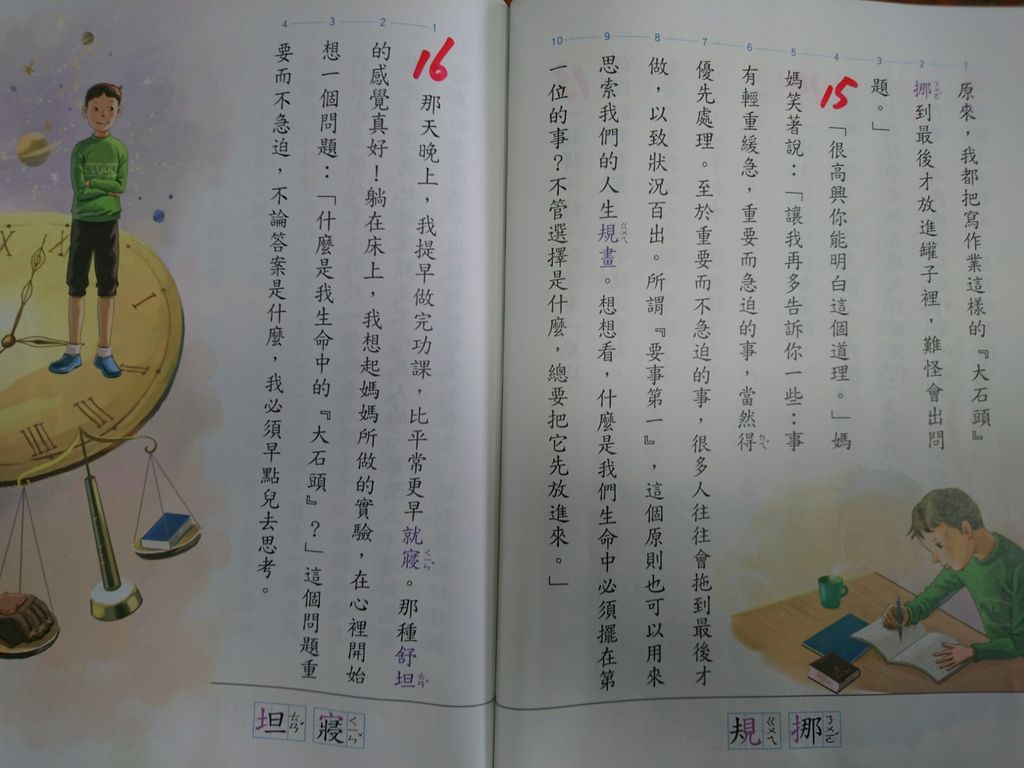 原來，我都把寫作業這樣的『大石頭』
挪到最後才放進罐子裡，難怪會出問
題。」
15
「很高興你能明白這個道理。」媽
媽笑著說：「讓我再多告訴你一些：事
有輕重緩急，重要而急迫的事，當然得
優先處理。至於重要而不急迫的事，很多人往往會拖到最後才
做，以致狀況百出。所謂『要事第一』，這個原則也可以用來
思索我們的人生規畫。想想看，什麼是我們生命中必須擺在第
一位的事？不管選擇是什麼，總要把它先放進來。」
1 2 3 4 5 6 7 8 9 10
挪 ㄋㄨㄛˊ
規 ㄍㄨㄟ
16
那天晚上，我提早做完功課，比平常更早就寢。那種舒坦
的感覺真好！躺在床上，我想起媽媽所做的實驗，在心裡開始
想一個問題：「什麼是我生命中的『大石頭』？」這個問題重
要而不急迫，不論答案是什麼，我必須早點兒去思考。
1 2 3 4
寢 ㄑㄧㄣˇ
坦 ㄊㄢˇ